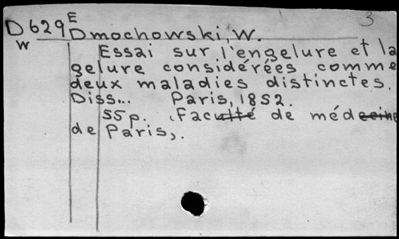 E 3
D629 Dmochowski, W.
W Essai sur l'engelure et la
gelure considérées comme
deux maladies distinctes.
Diss... Paris, 1852.
55p. (Faculté de médecine
de Paris,.